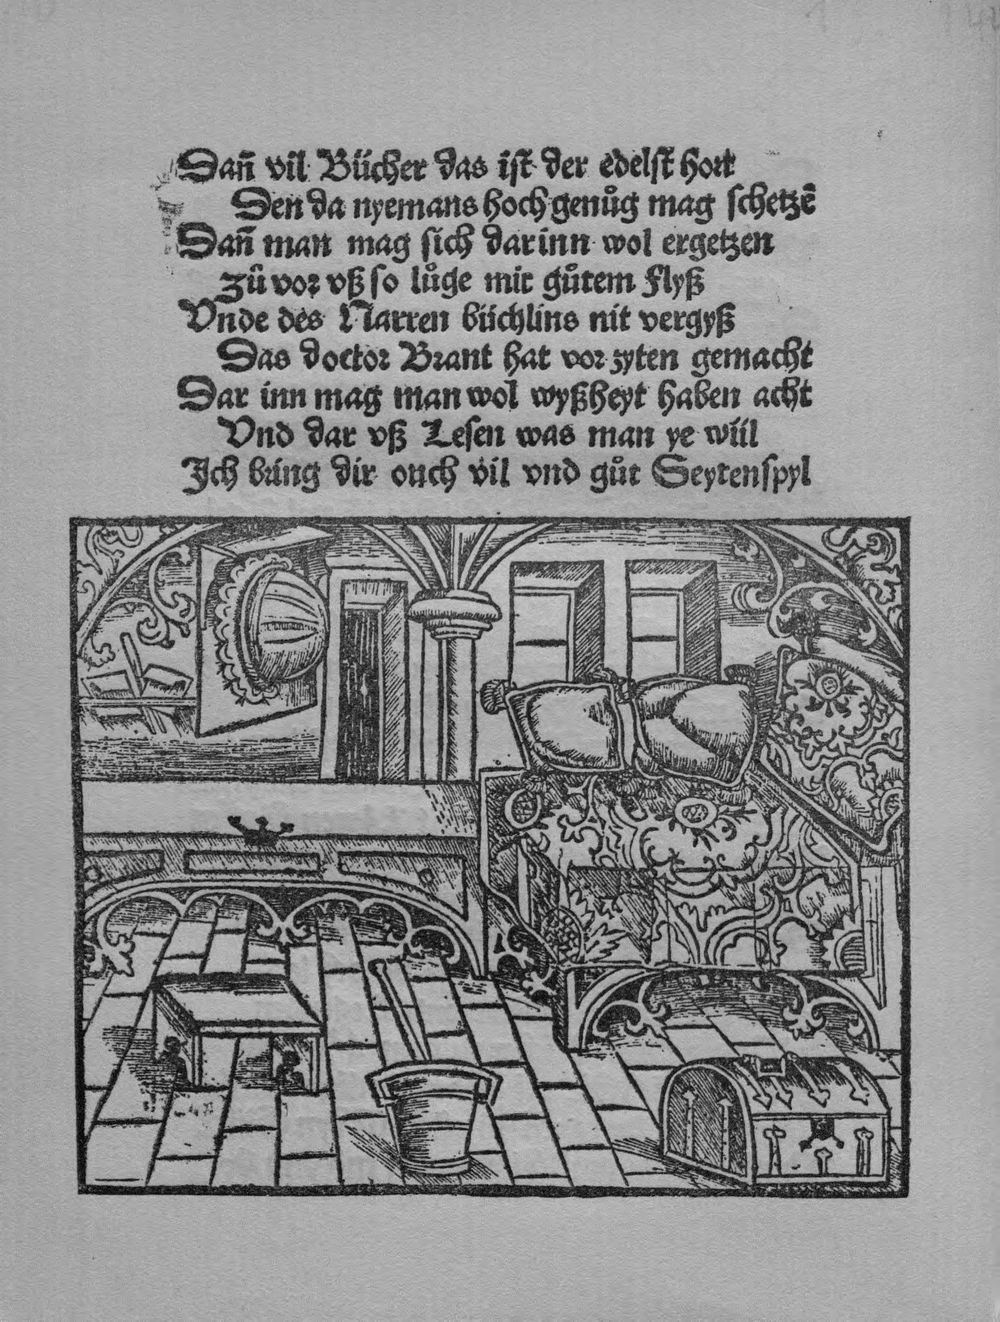 Dañ vil Bücher das ist der edelst hort
Den da nyemans hoch genůg mag schetzē
Dañ man mag sich darinn wol ergetzen
zů vor vß so lůge mit gůtem flyß
Vnde des Narren büchlins nit vergyß
Das doctor Brant hat vor zyten gemacht
Dar inn mag man wol wyßheyt haben acht
Vnd dar vß Lesen was man ye wiil
Ich bring dir ouch vil vnd gůt Seytenspyl